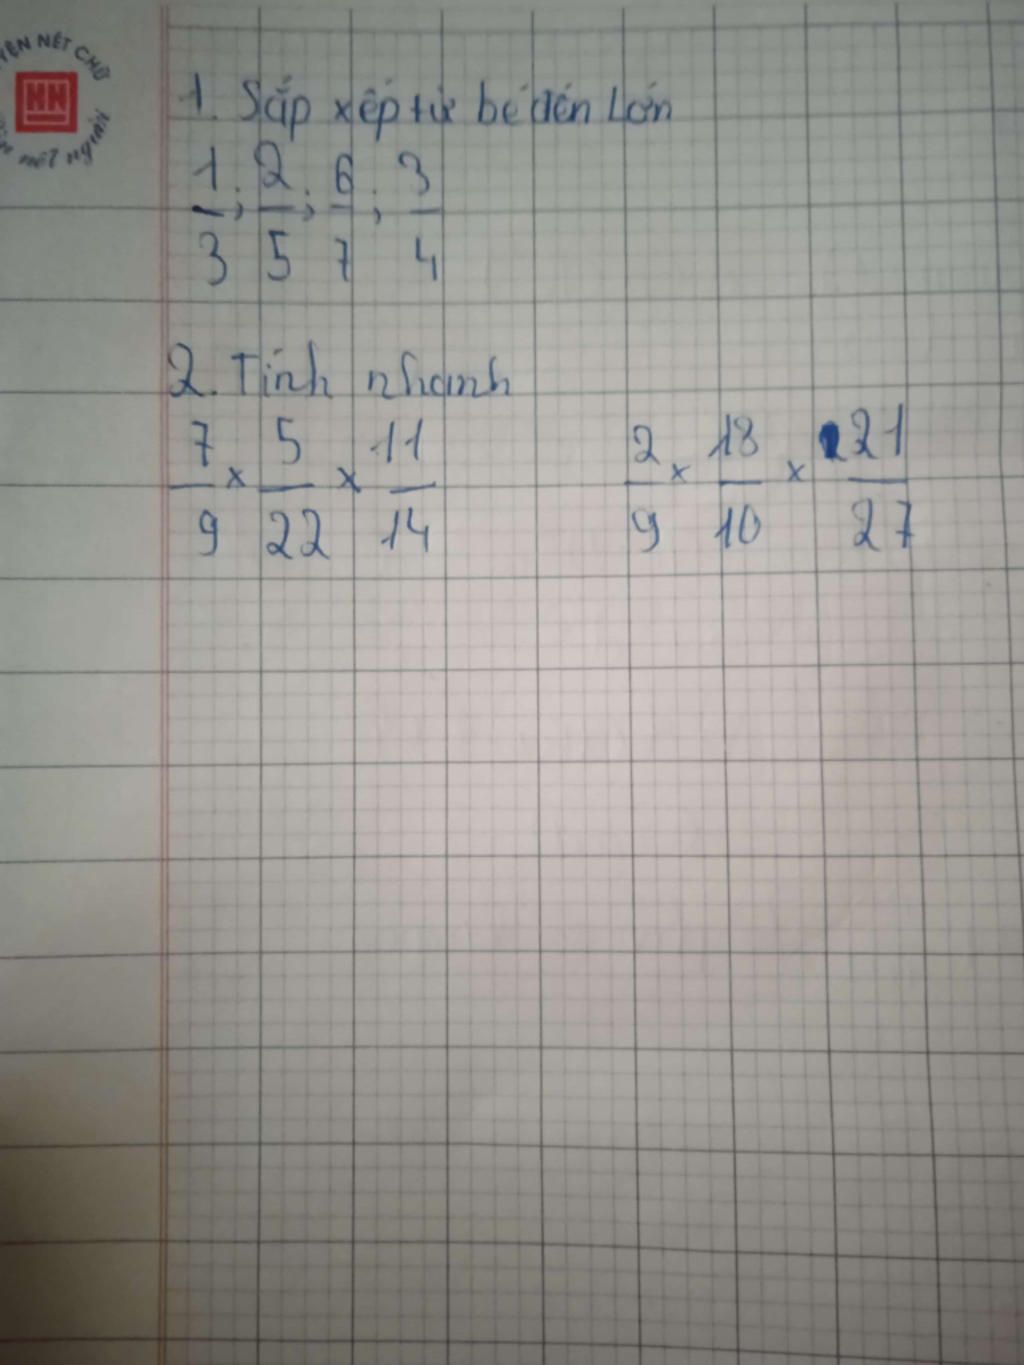 YỆN NÉT CHỮ
HN
nét người
1. Sắp xếp từ bé đến Lớn
1/3 ; 2/5 ; 6/7 ; 3/4
2. Tính nhanh
7/9 x 5/22 x 11/14   2/9 x 18/10 x 21/27